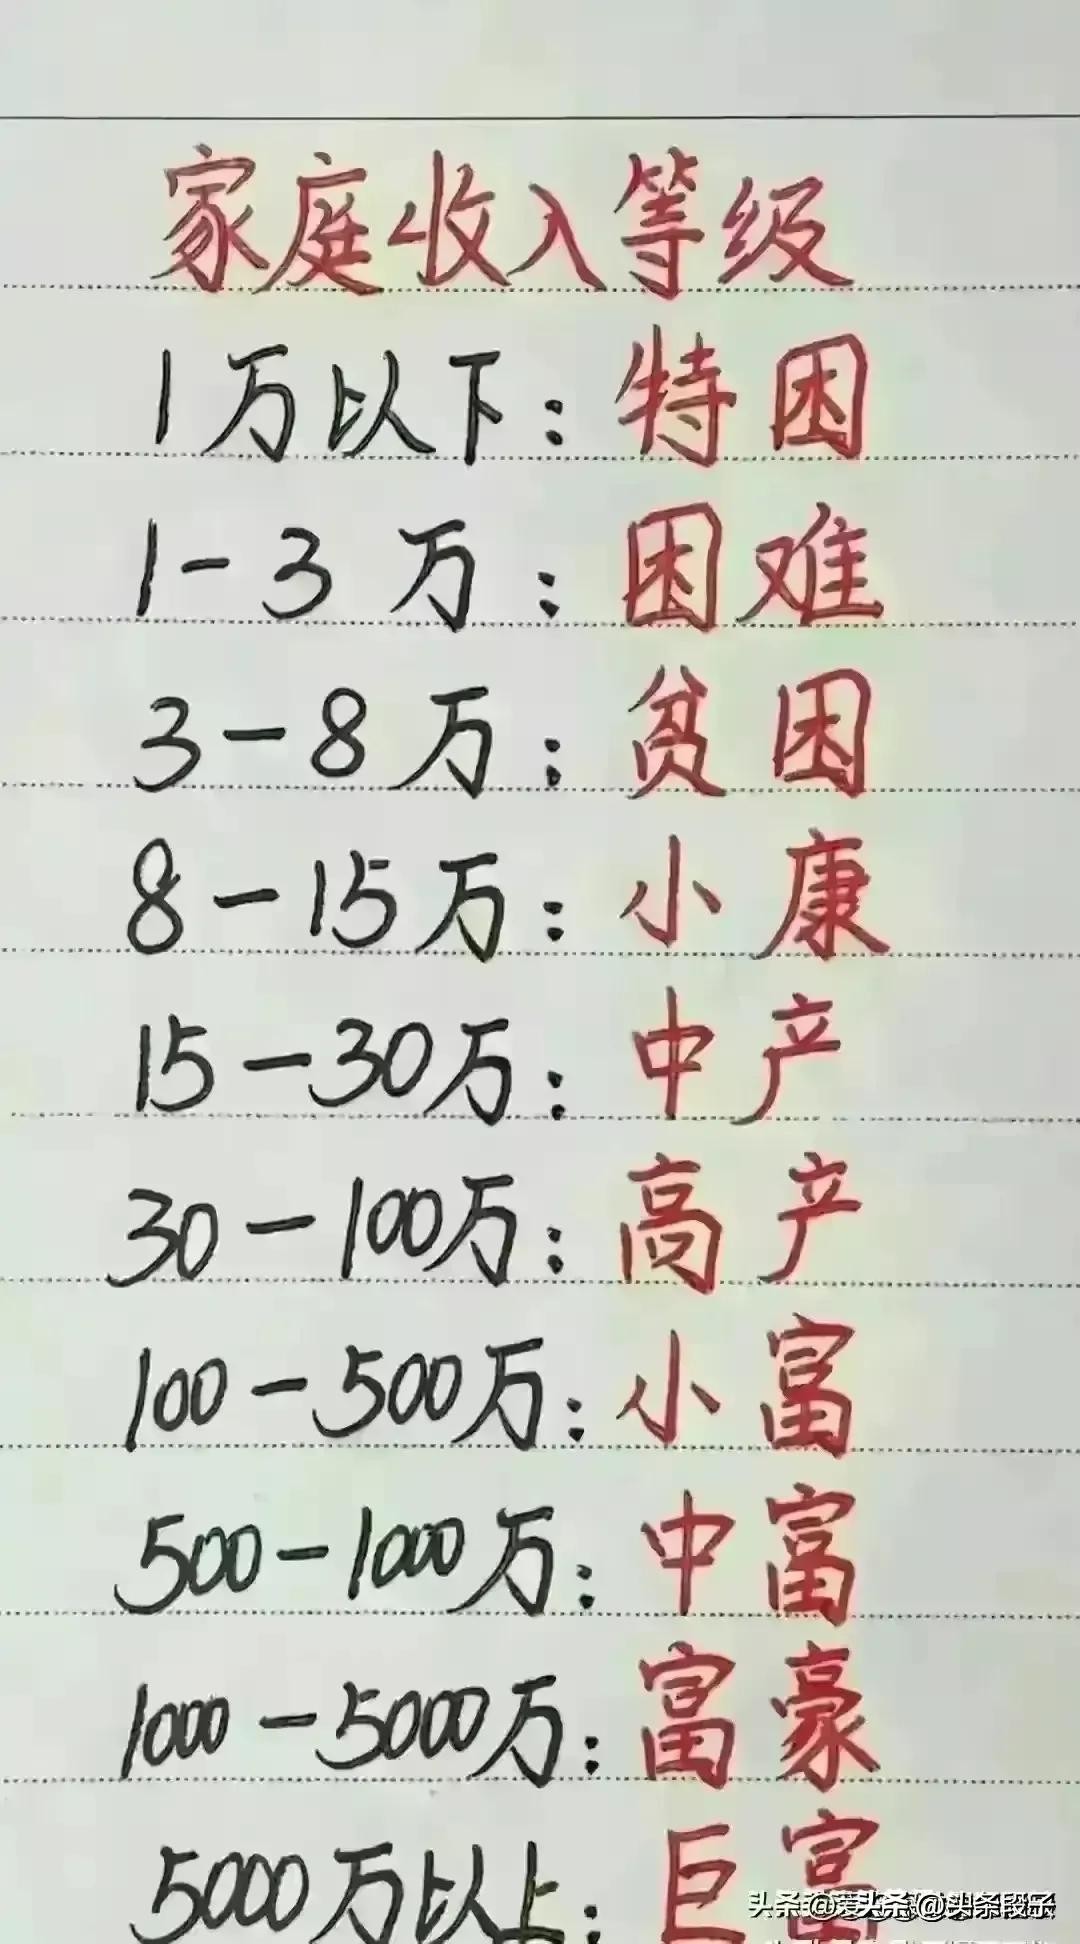 家庭收入等级
1万以下：特困
1-3万：困难
3-8万：贫困
8-15万：小康
15-30万：中产
30-100万：高产
100-500万：小富
500-1000万：中富
1000-5000万：富豪
5000万以上：巨富
头条@头条段子